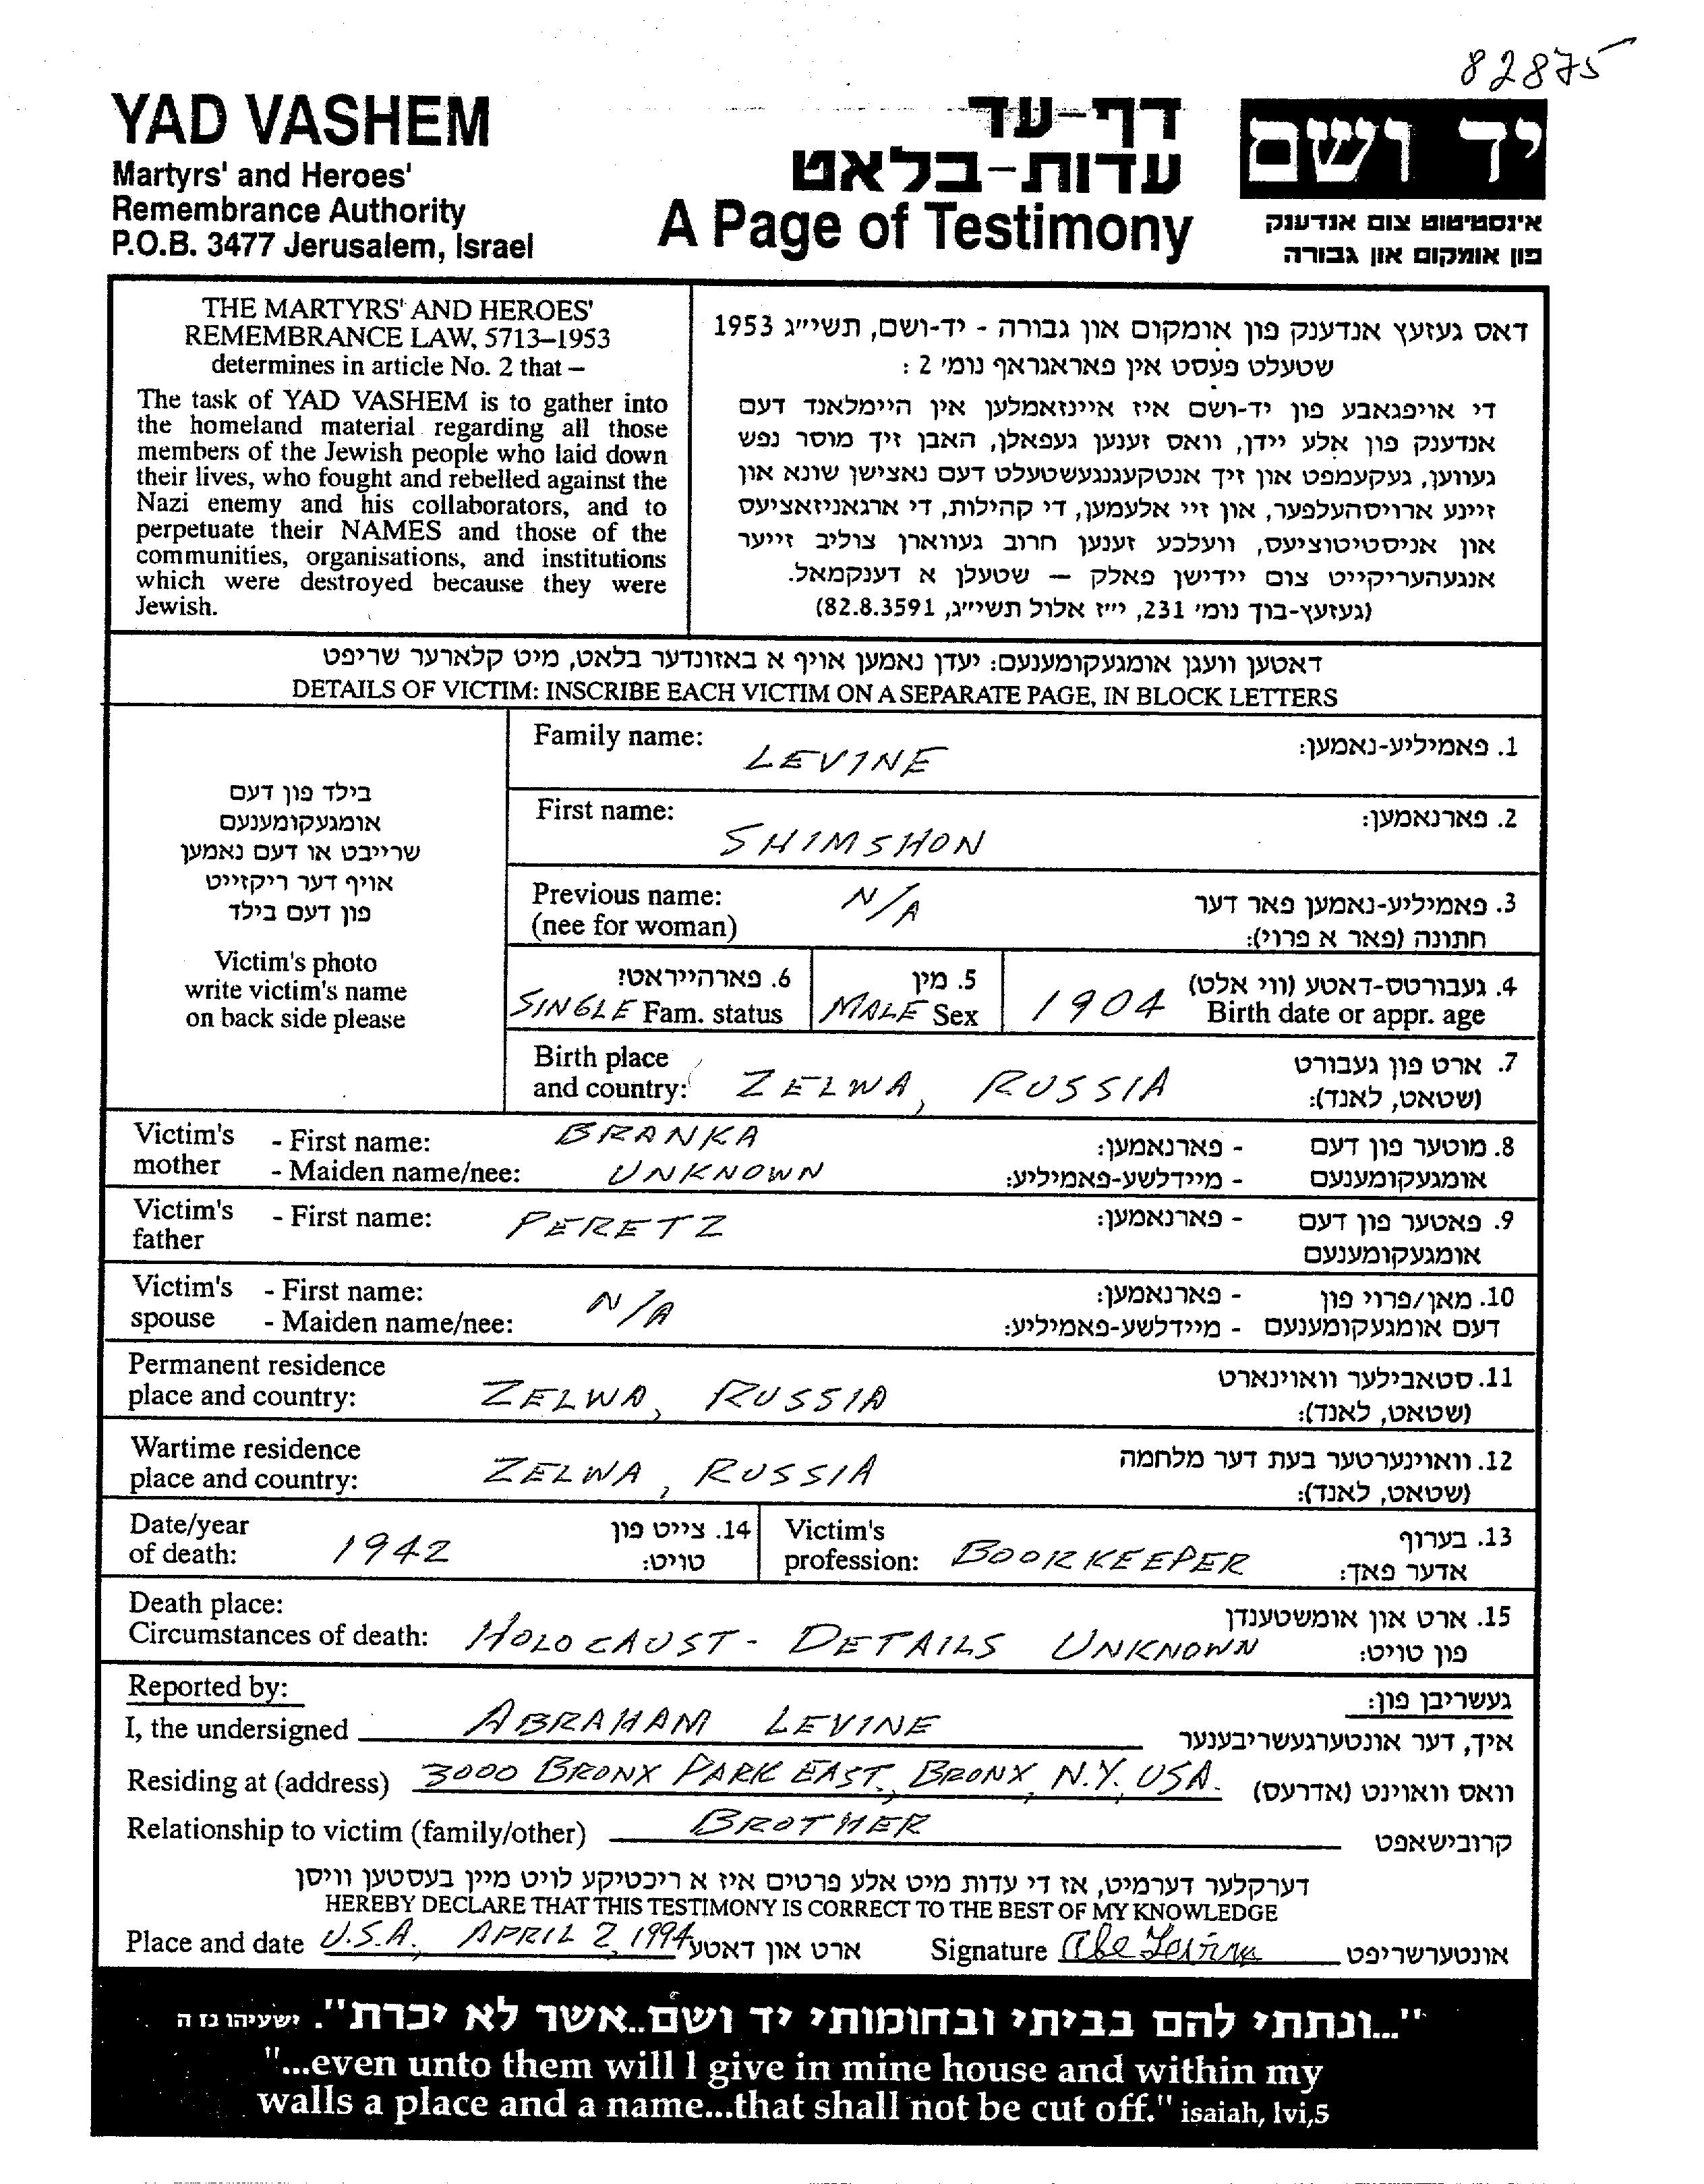 82875
YAD VASHEM
Martyrs' and Heroes'
Remembrance Authority
P.O.B. 3477 Jerusalem, Israel
דף-עד
עדות-בלאט
A Page of Testimony
יד ושם
אינסטיטוט צום אנדענק
פון אומקום און גבורה
THE MARTYRS' AND HEROES'
REMEMBRANCE LAW, 5713–1953
determines in article No. 2 that –
The task of YAD VASHEM is to gather into
the homeland material regarding all those
members of the Jewish people who laid down
their lives, who fought and rebelled against the
Nazi enemy and his collaborators, and to
perpetuate their NAMES and those of the
communities, organisations, and institutions
which were destroyed because they were
Jewish.
דאס געזעץ אנדענק פון אומקום און גבורה - יד-ושם, תשי״ג 1953
שטעלט פעסט אין פאראגראף נומ׳ 2 :
די אויפגאבע פון יד-ושם איז איינזאמלען אין היימלאנד דעם
אנדענק פון אלע יידן, וואס זענען געפאלן, האבן זיך מוסר נפש
געווען, געקעמפט און זיך אנטקעגנגעשטעלט דעם נאצישן שונא און
זיינע ארויסהעלפער, און זיי אלעמען, די קהילות, די ארגאניזאציעס
און אניסטיטוציעס, וועלכע זענען חרוב געווארן צוליב זייער
אנגעהעריקייט צום יידישן פאלק — שטעלן א דענקמאל.
(געזעץ-בוך נומ׳ 231, י״ז אלול תשי״ג, 82.8.3591)
דאטען וועגן אומגעקומענעם: יעדן נאמען אויף א באזונדער בלאט, מיט קלארער שריפט
DETAILS OF VICTIM: INSCRIBE EACH VICTIM ON A SEPARATE PAGE, IN BLOCK LETTERS
בילד פון דעם
אומגעקומענעם
שרייבט או דעם נאמען
אויף דער ריקזייט
פון דעם בילד
Victim's photo
write victim's name
on back side please
Family name: LEVINE 1. פאמיליע-נאמען:
First name: SHIMSHON 2. פארנאמען:
Previous name: N/A 3. פאמיליע-נאמען פאר דער
(nee for woman) חתונה (פאר א פרוי):
6. פארהייראט? 5. מין 4. געבורטס-דאטע (ווי אלט)
SINGLE Fam. status MALE Sex 1904 Birth date or appr. age
Birth place 7. ארט פון געבורט
and country: ZELWA, RUSSIA (שטאט, לאנד):
Victim's - First name: BRANKA - פארנאמען: 8. מוטער פון דעם
mother - Maiden name/nee: UNKNOWN - מיידלשע-פאמיליע: אומגעקומענעם
Victim's - First name: PERETZ - פארנאמען: 9. פאטער פון דעם
father אומגעקומענעם
Victim's - First name: N/A - פארנאמען: 10. מאן/פרוי פון
spouse - Maiden name/nee: - מיידלשע-פאמיליע: דעם אומגעקומענעם
Permanent residence 11. סטאבילער וואוינארט
place and country: ZELWA, RUSSIA (שטאט, לאנד):
Wartime residence 12. וואוינערטער בעת דער מלחמה
place and country: ZELWA, RUSSIA (שטאט, לאנד):
Date/year 14. צייט פון Victim's 13. בערוף
of death: 1942 טויט: profession: BOOKKEEPER אדער פאך:
Death place: 15. ארט און אומשטענדן
Circumstances of death: HOLOCAUST - DETAILS UNKNOWN פון טויט:
Reported by: געשריבן פון:
I, the undersigned ABRAHAM LEVINE איך, דער אונטערגעשריבענער
Residing at (address) 3000 BRONX PARK EAST, BRONX, N.Y., USA. וואס וואוינט (אדרעס)
Relationship to victim (family/other) BROTHER קרובישאפט
דערקלער דערמיט, אז די עדות מיט אלע פרטים איז א ריכטיקע לויט מיין בעסטען וויסן
HEREBY DECLARE THAT THIS TESTIMONY IS CORRECT TO THE BEST OF MY KNOWLEDGE
Place and date U.S.A., APRIL 2, 1994 ארט און דאטע Signature Abe Levine אונטערשריפט
"...ונתתי להם בביתי ובחומותי יד ושם..אשר לא יכרת". ישעיהו נז ה
"...even unto them will I give in mine house and within my
walls a place and a name...that shall not be cut off." isaiah, lvi,5